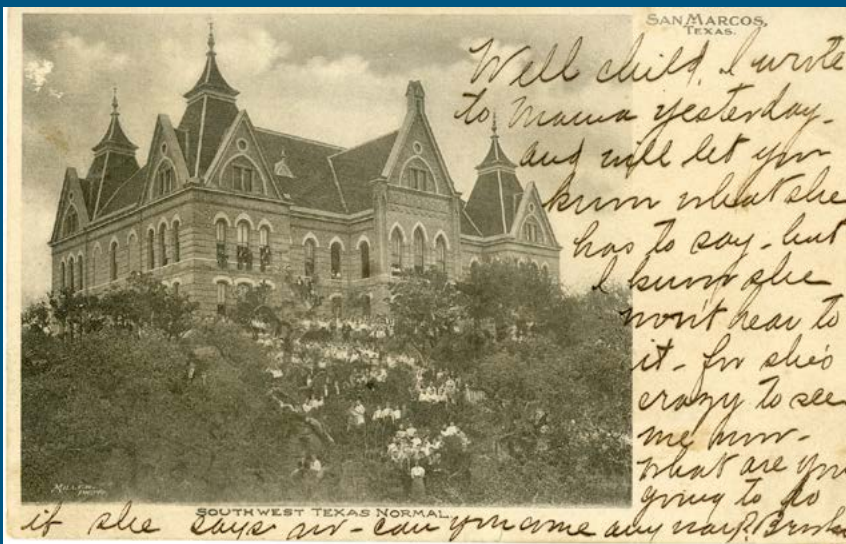 SAN MARCOS,
TEXAS.
Well child, I wrote
to mama yesterday-
and will let you
know what she
has to say- but
I know she
won't hear to
it- for she's
crazy to see
me now-
what are you
going to do
if she says no- can you come any way?
MILLER
PHOTO
SOUTHWEST TEXAS NORMAL.